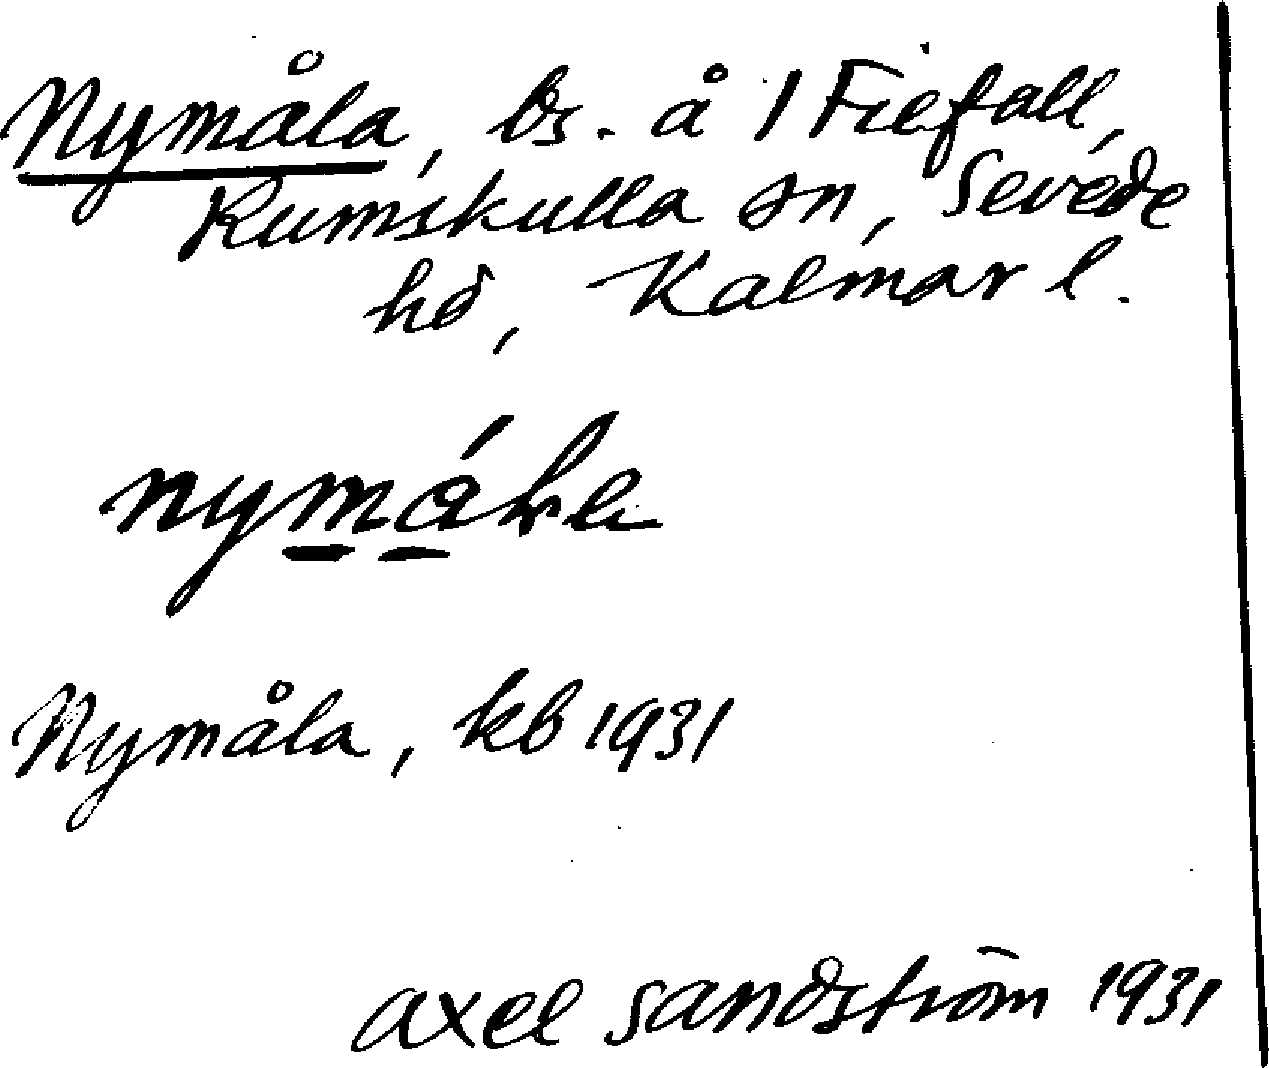 Nymåla, bs. å 1 Fiefall,
Rumskulla sn, Sevede
hd, Kalmar l.
Nymåla, kb 1931
Axel Sandström 1931